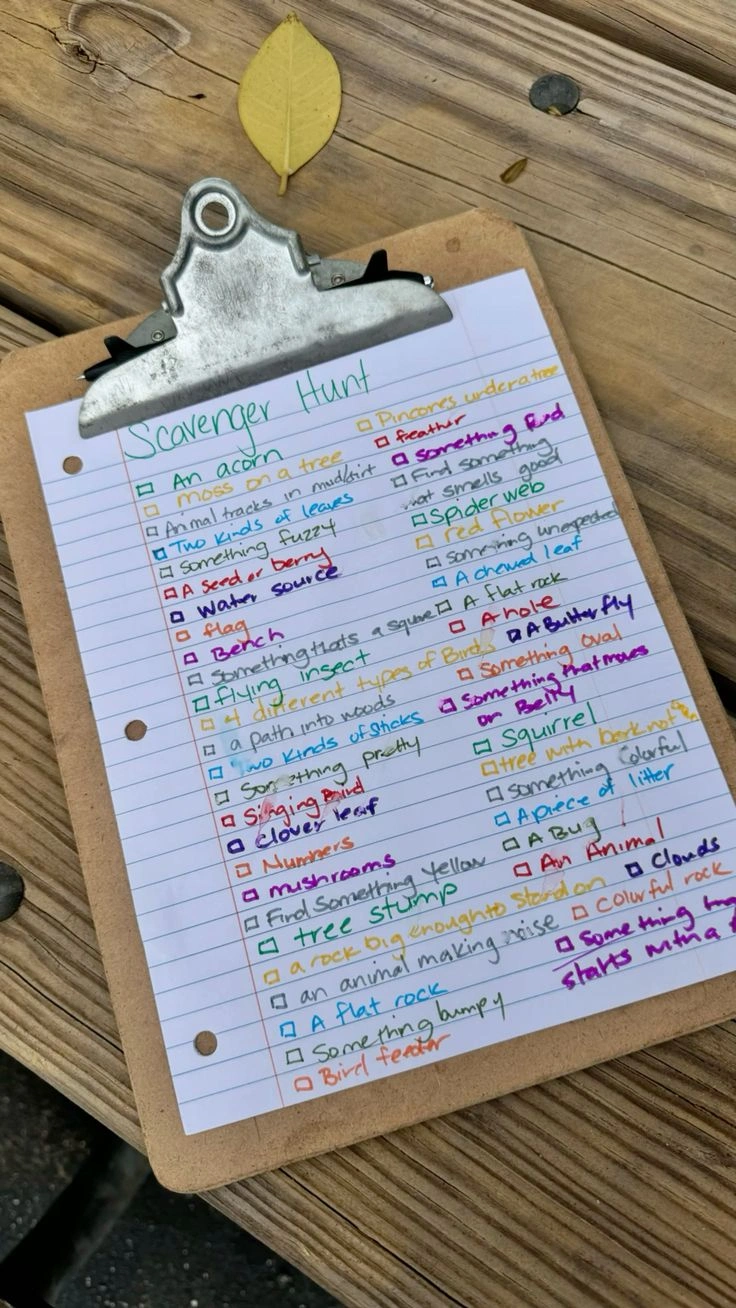 Scavenger Hunt
An acorn
moss on a tree
Animal tracks in mud/dirt
Two kinds of leaves
Something fuzzy
A seed or berry
Water source
flag
Bench
Something thats a square
flying insect
4 different types of Birds
a path into woods
Two kinds of Sticks
Something pretty
Singing Bird
Clover leaf
Numbers
mushrooms
Find Something Yellow
tree stump
a rock big enough to stand on
an animal making noise
A flat rock
Something bumpy
Bird feeder
Pincones under a tree
feather
something
Find something
that smells good
spider web
red flower
something unexpected
A chewed leaf
A flat rock
A hole
A Butterfly
Something oval
Something that moves
on Belly
Squirrel
tree with bark not
something Colorful
A piece of litter
A Bug
An Animal
Clouds
Colorful rock
Something
starts with a